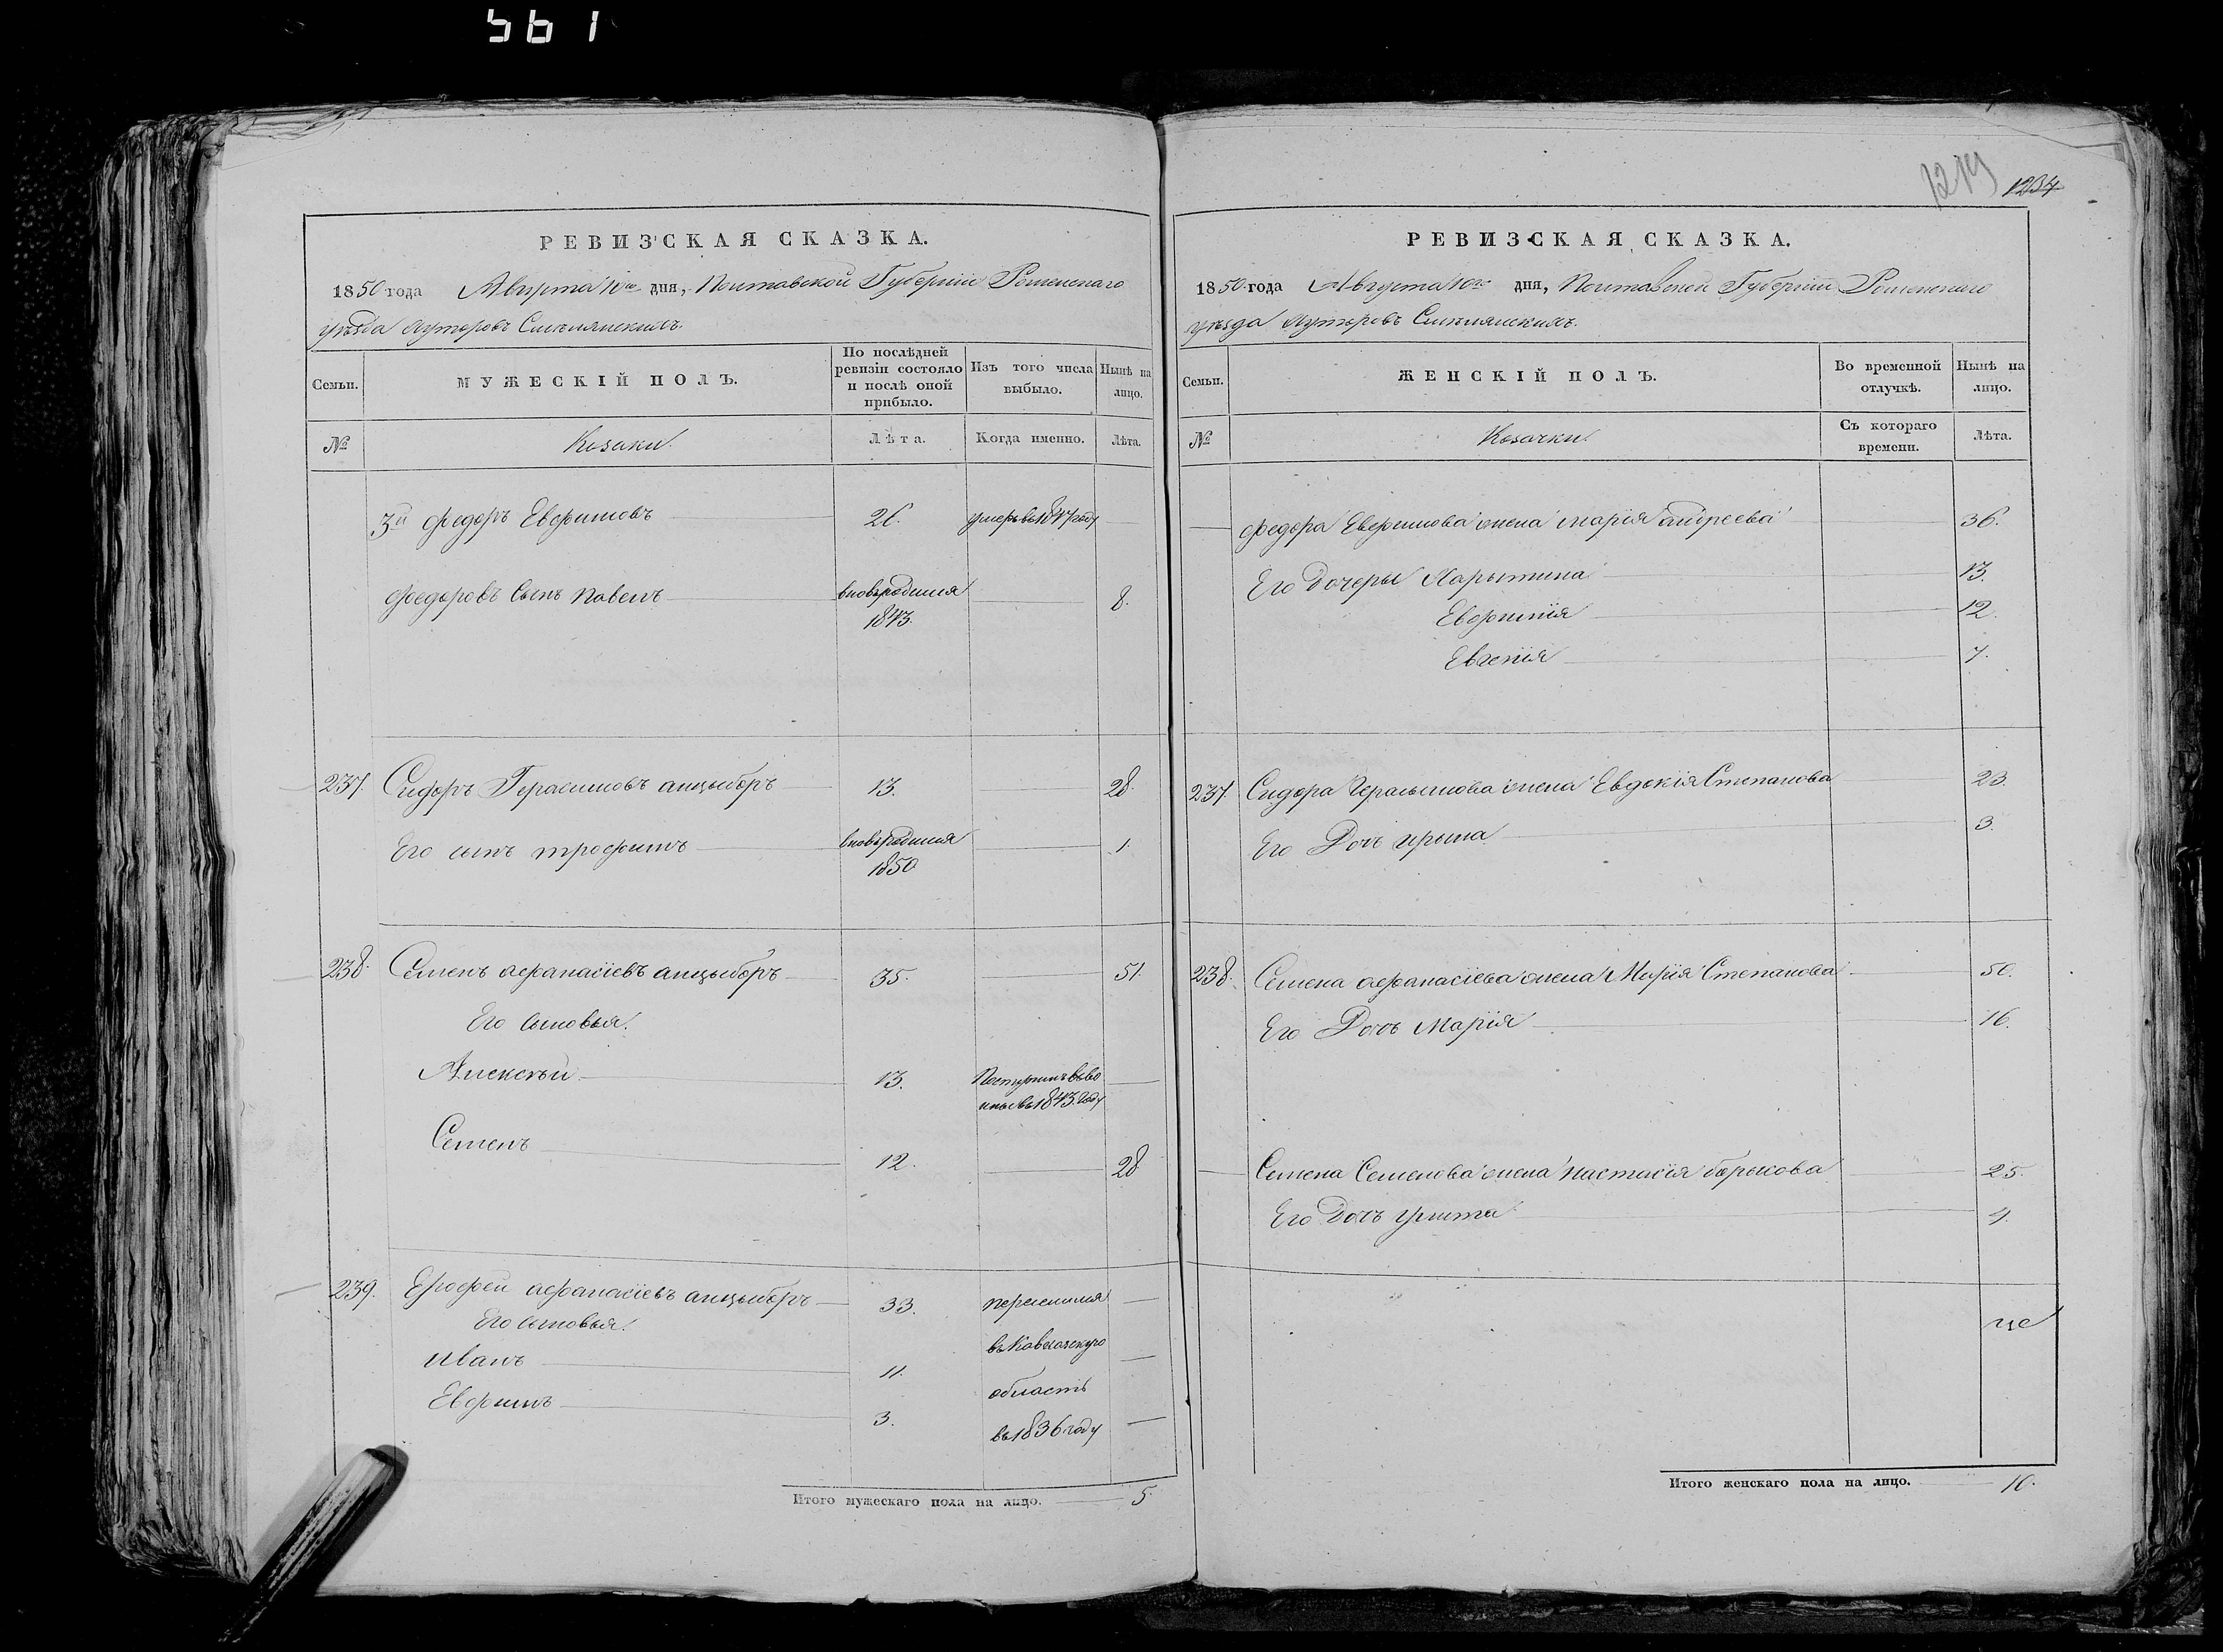 561
РЕВИЗСКАЯ СКАЗКА.
1850 года Августа 10го дня, Полтавской Губерніи Роменскаго
уѣзда хуторовъ Смѣлянскихъ.
Семьи.
МУЖЕСКІЙ ПОЛЪ.
По послѣдней ревизіи состояло и послѣ оной прибыло.
Изъ того числа выбыло.
Нынѣ на лицо.
№
Козаки.
Лѣта.
Когда именно.
Лѣта.
3й Федоръ Евфимовъ 26. умеръ въ 1847 году
Федоровъ Сынъ Павелъ вновьродился 8.
1843.
237. Сидоръ Герасимовъ анцыборъ 13. 28.
Его сынъ трофимъ вновьродился 1.
1850
238. Семенъ афанасіевъ анцыборъ 35. 51.
Его сыновья.
Алексѣй 13.
въ 1843. году
Семенъ 12. 28
239. Ерофей афанасіевъ анцыборъ 33. переселился
Его сыновья.
въ Кавказскую
иванъ 11.
область
Евфимъ 3.
въ 1836 году
Итого мужескаго пола на лицо. 5.
1219 1234
РЕВИЗСКАЯ СКАЗКА.
1850 года Августа 10го дня, Полтавской Губерніи Роменскаго
уѣзда хуторовъ Смѣлянскихъ.
Семьи.
ЖЕНСКІЙ ПОЛЪ.
Во временной отлучкѣ.
Нынѣ на лицо.
№
Козачки.
Съ котораго времени.
Лѣта.
Федора Евфимова жена марія андреева 36.
Его дочеры 13.
Евфимія 12.
Евгенія 7.
237. Сидора Герасымова жена Евдокія Степанова 23.
Его Дочь ирына 3.
238. Семена афанасіева жена Марія Степанова 50.
Его Дочь Марія 16.
Семена Семенова жена настасія борысова 25.
Его Дочь улита 4.
Итого женскаго пола на лицо. 10.